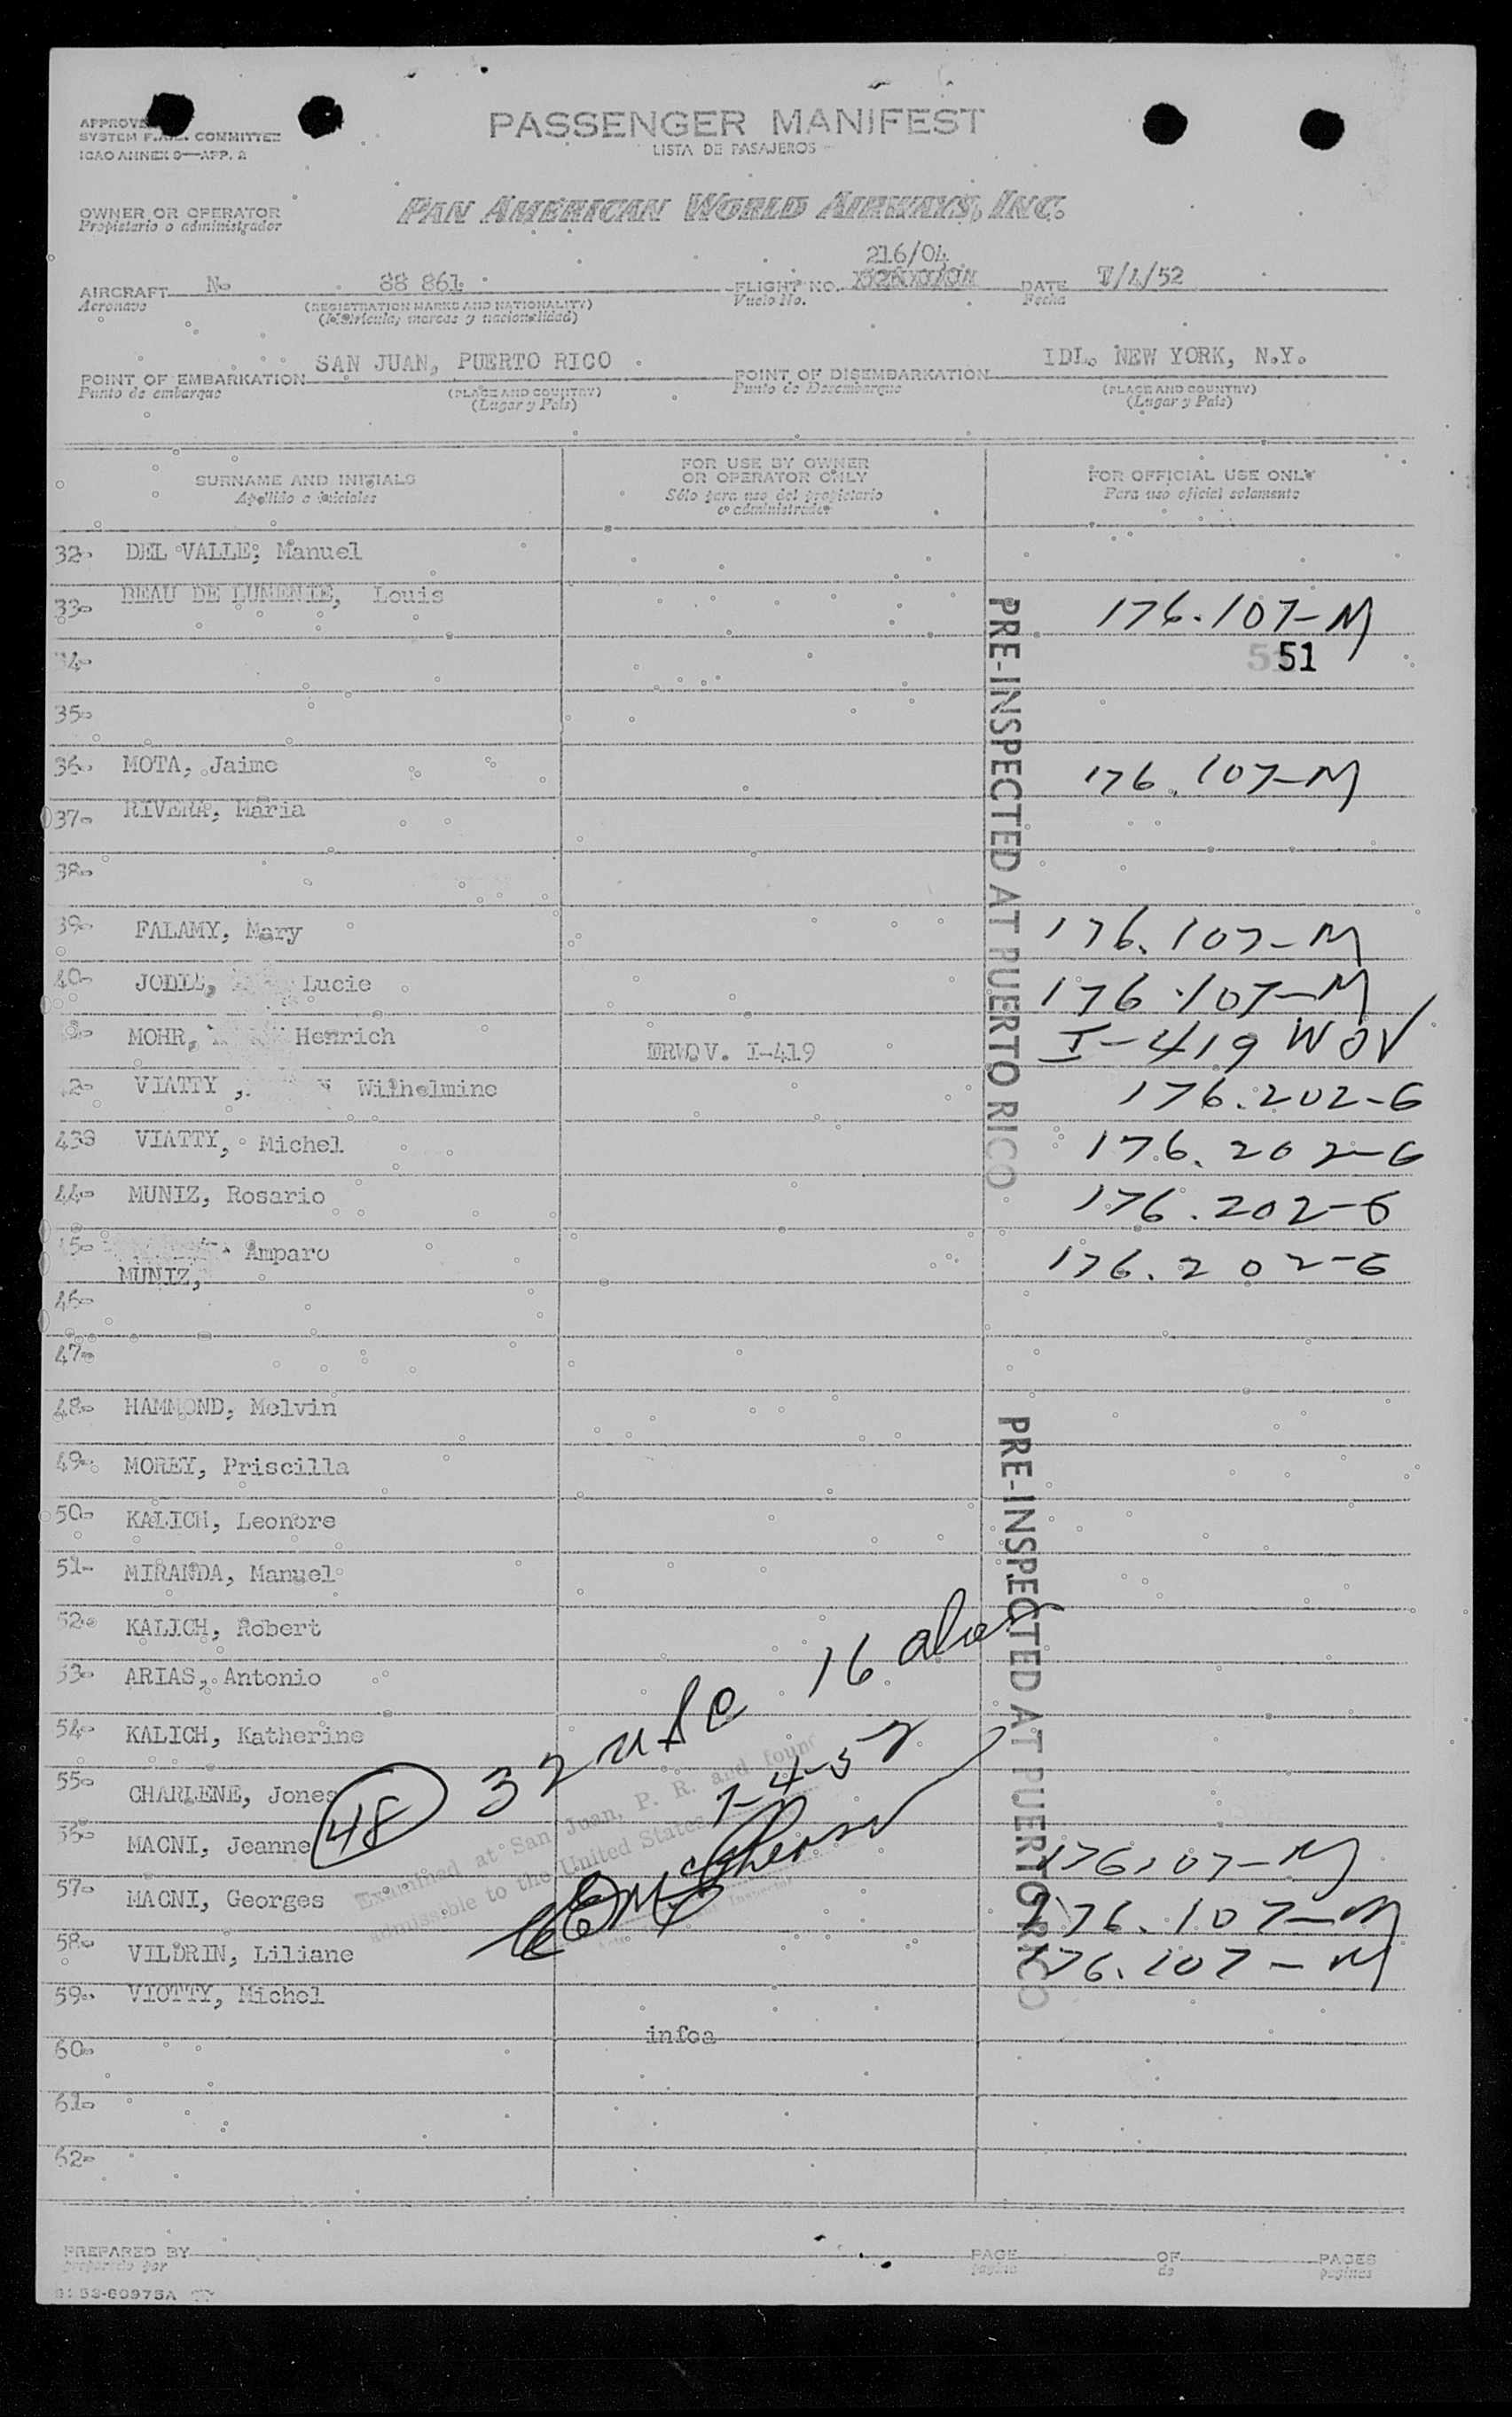 SYSTEM COMMITTEE
ICAO ANNEX 9—APP. 2
PASSENGER MANIFEST
LISTA DE PASAJEROS
OWNER OR OPERATOR
Propietario o administrador
PAN AMERICAN WORLD AIRWAYS, INC.
216/04
AIRCRAFT N. 88 861 FLIGHT NO. DATE 7/4/52
Aeronave (REGISTRATION MARKS AND NATIONALITY) Vuelo No. Fecha
(Matricula, marcas y nacionalidad)
POINT OF EMBARKATION SAN JUAN, PUERTO RICO POINT OF DISEMBARKATION IDL. NEW YORK, N.Y.
Punto de embarque (PLACE AND COUNTRY) Punto de Desembarque (PLACE AND COUNTRY)
(Lugar y Pais) (Lugar y Pais)
SURNAME AND INITIALS FOR USE BY OWNER OR OPERATOR ONLY FOR OFFICIAL USE ONLY
Apellido e iniciales Sólo para uso del propietario o administrador Para uso oficial solamente
32. DEL VALLE, Manuel
33. BEAU DE Louis 176.107-M
34. 51
35.
36. MOTA, Jaime 176.107-M
37. RIVERA, Maria
38.
39. FALAMY, Mary 176.107-M
40. Lucie 176.107-M
MOHR, Henrich I-419 I-419 WOV
VIATTY, Wilhelmine 176.202-6
43 VIATTY, Michel 176.202-6
44. MUNIZ, Rosario 176.202-6
Amparo 176.202-6
MUNIZ,
46.
47.
48. HAMMOND, Melvin
49. MOREY, Priscilla
50. KALICH, Leonore
51. MIRANDA, Manuel
52. KALICH, Robert
53. ARIAS, Antonio
54. KALICH, Katherine
55. CHARLENE, Jones
MACNI, Jeanne 176.107-M
57. MACNI, Georges 176.107-M
58. VILDRIN, Liliane 176.107-M
59. VIOTTY, Michel
60. infoa
61.
62.
PRE-INSPECTED AT PUERTO RICO
PRE-INSPECTED AT PUERTO RICO
48 32 usc 16
7-4-52
Examined at San Juan, P. R. and found
admissible to the United States
Inspector
PREPARED BY PAGE OF PAGES
preparado por pagina de paginas